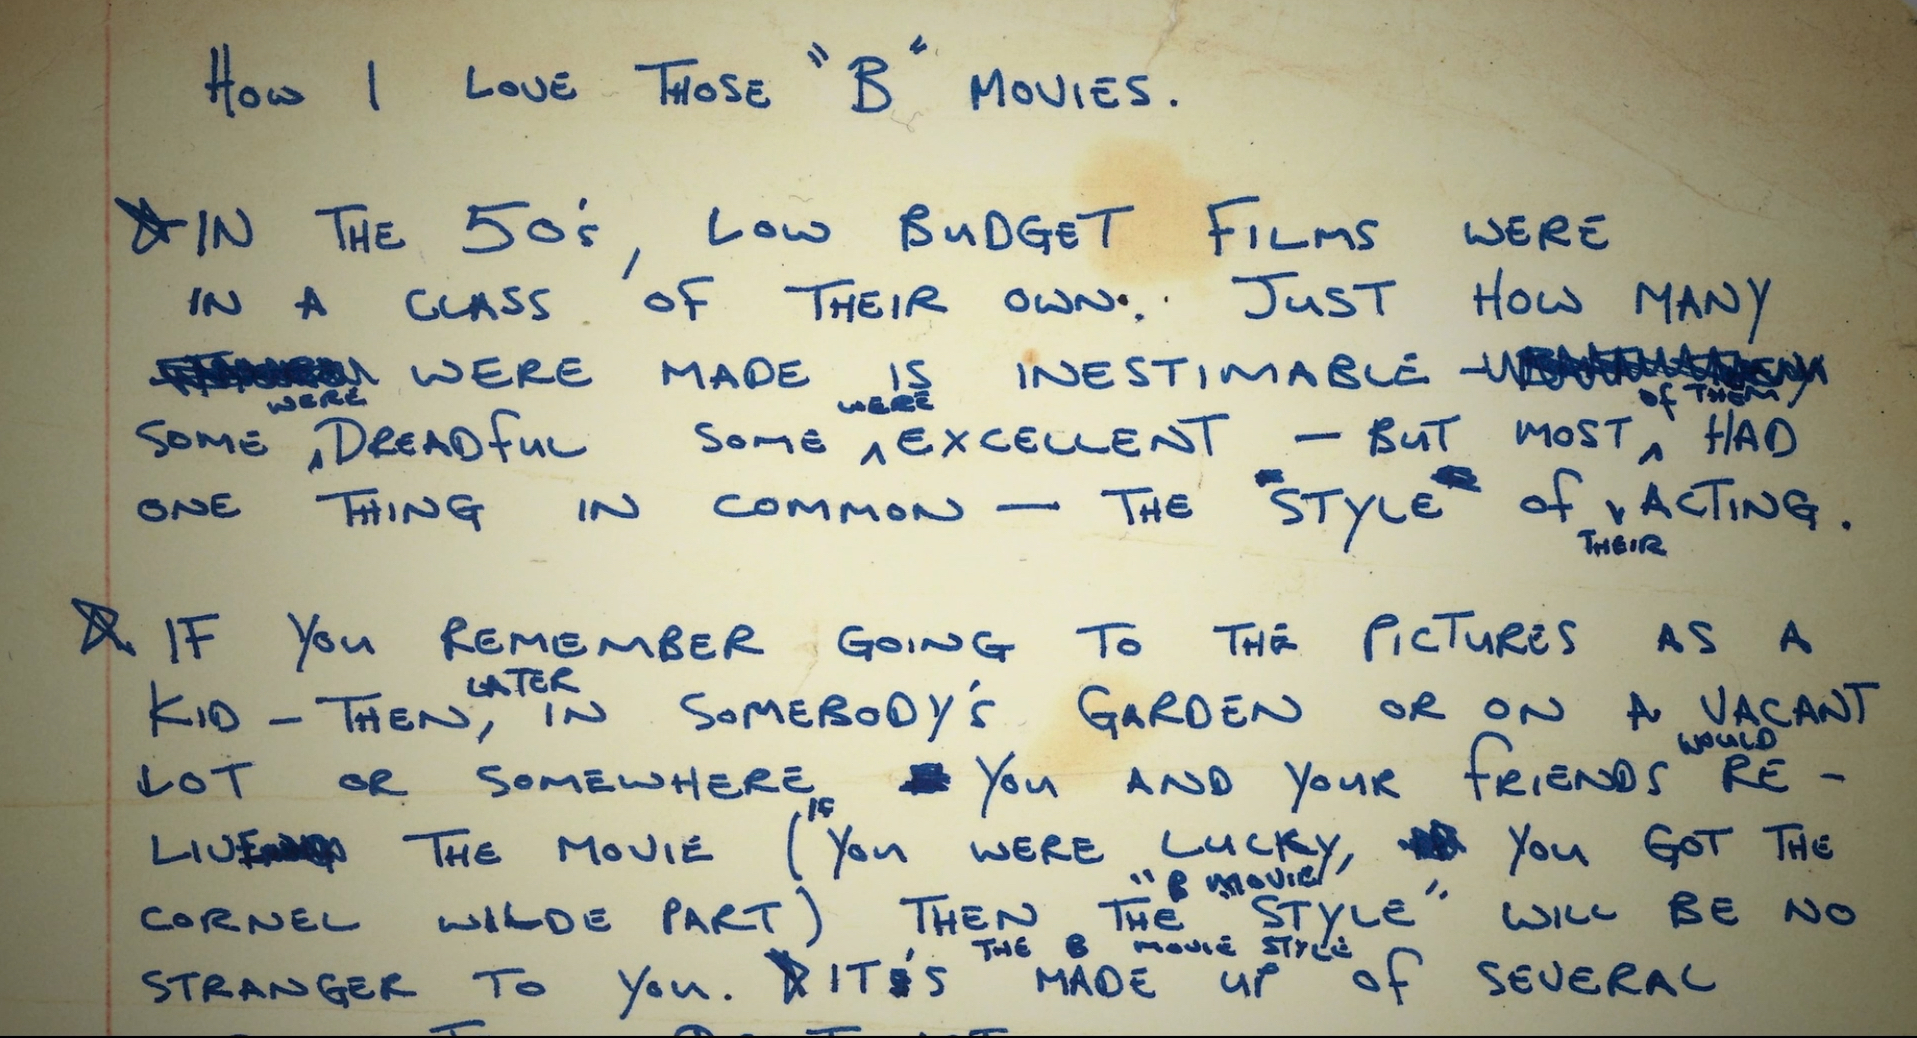 How I LOVE THOSE "B" MOVIES.
☆ IN THE 50's, LOW BUDGET FILMS WERE
IN A CLASS OF THEIR OWN. JUST HOW MANY
WERE MADE IS INESTIMABLE -
WERE WERE OF THEM
SOME ^ DREADFUL SOME ^ EXCELLENT - BUT MOST ^ HAD
ONE THING IN COMMON - THE STYLE OF v ACTING.
THEIR
☆ IF YOU REMEMBER GOING TO THE PICTURES AS A
LATER
KID - THEN, IN SOMEBODY'S GARDEN OR ON A VACANT
WOULD
LOT OR SOMEWHERE YOU AND YOUR FRIENDS RE -
IF
LIVE THE MOVIE (YOU WERE LUCKY, YOU GOT THE
"B MOVIE
CORNEL WILDE PART) THEN THE "STYLE" WILL BE NO
THE B MOVIE STYLE
STRANGER TO YOU. ☆ IT'S MADE UP OF SEVERAL